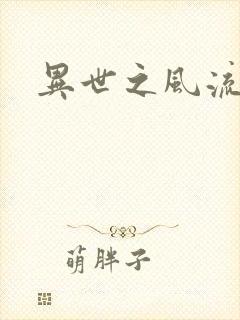 異世之風流
萌胖子